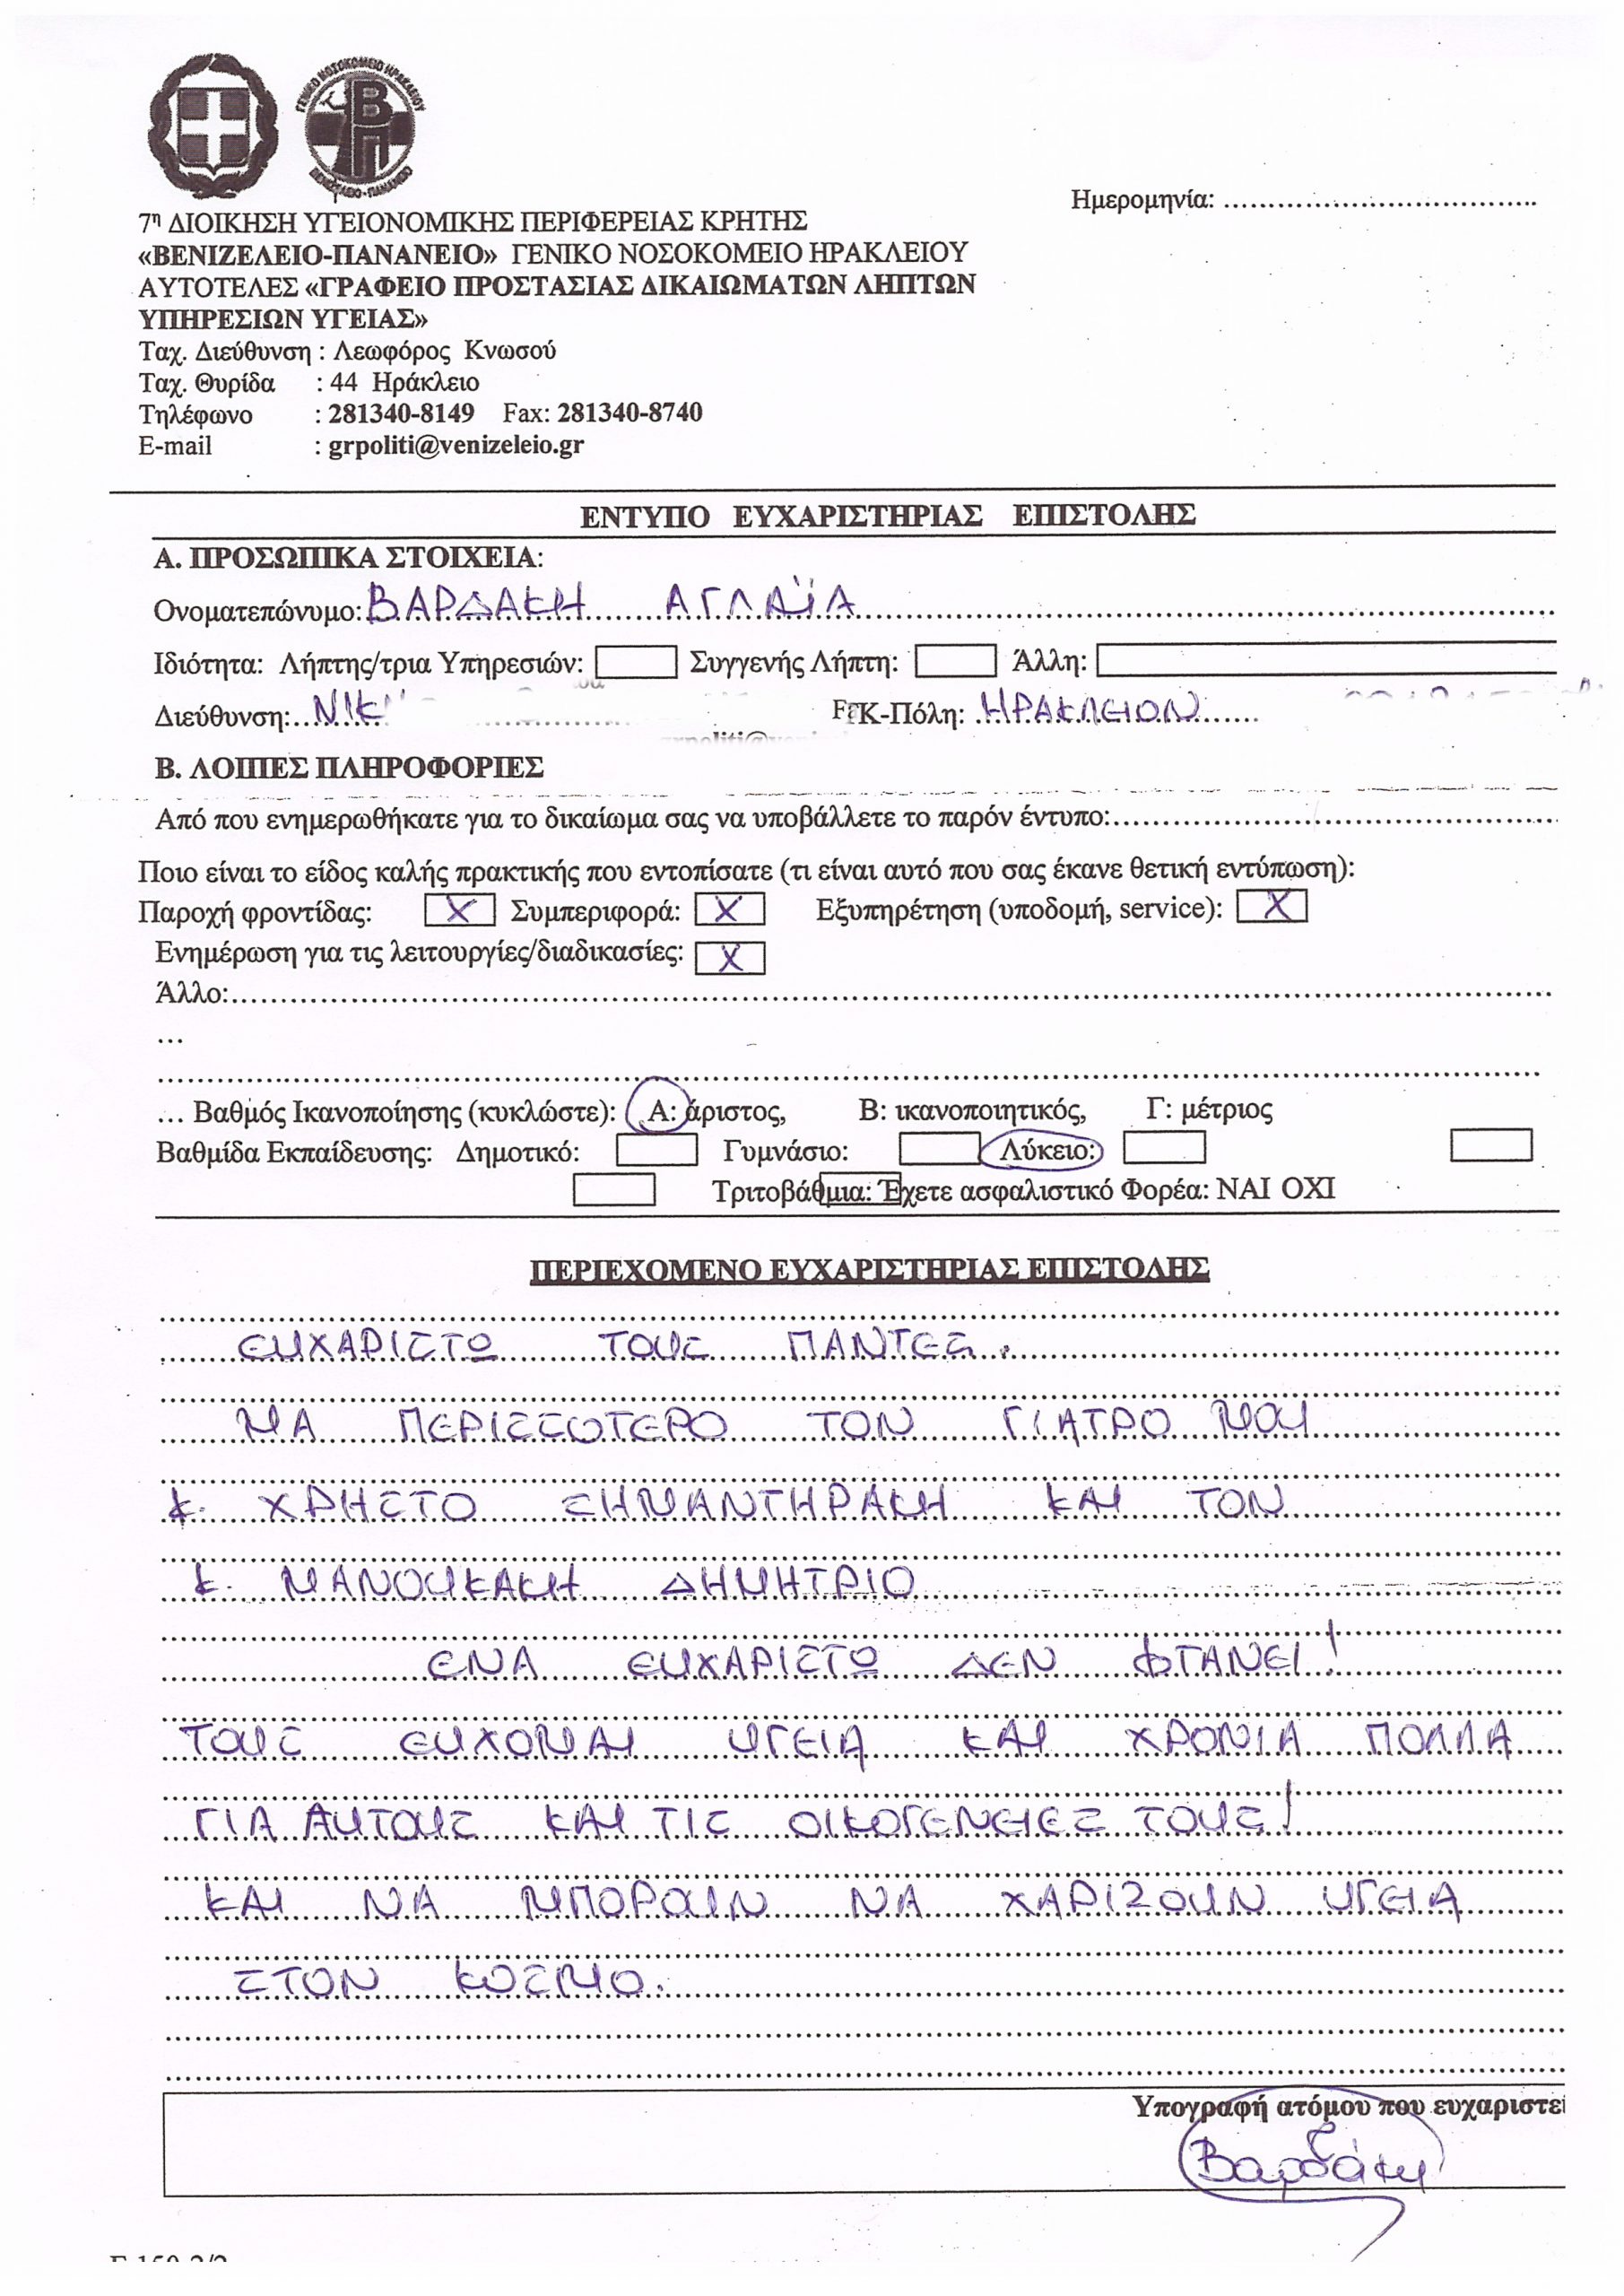 ΓΕΝΙΚΟ ΝΟΣΟΚΟΜΕΙΟ ΗΡΑΚΛΕΙΟΥ
ΒΠ
ΒΕΝΙΖΕΛΕΙΟ-ΠΑΝΑΝΕΙΟ
Ημερομηνία: ..................................
7η ΔΙΟΙΚΗΣΗ ΥΓΕΙΟΝΟΜΙΚΗΣ ΠΕΡΙΦΕΡΕΙΑΣ ΚΡΗΤΗΣ
«ΒΕΝΙΖΕΛΕΙΟ-ΠΑΝΑΝΕΙΟ» ΓΕΝΙΚΟ ΝΟΣΟΚΟΜΕΙΟ ΗΡΑΚΛΕΙΟΥ
ΑΥΤΟΤΕΛΕΣ «ΓΡΑΦΕΙΟ ΠΡΟΣΤΑΣΙΑΣ ΔΙΚΑΙΩΜΑΤΩΝ ΛΗΠΤΩΝ
ΥΠΗΡΕΣΙΩΝ ΥΓΕΙΑΣ»
Ταχ. Διεύθυνση : Λεωφόρος Κνωσού
Ταχ. Θυρίδα : 44 Ηράκλειο
Τηλέφωνο : 281340-8149 Fax: 281340-8740
E-mail : grpoliti@venizeleio.gr
ΕΝΤΥΠΟ ΕΥΧΑΡΙΣΤΗΡΙΑΣ ΕΠΙΣΤΟΛΗΣ
Α. ΠΡΟΣΩΠΙΚΑ ΣΤΟΙΧΕΙΑ:
Ονοματεπώνυμο: ΒΑΡΔΑΚΗ ΑΓΛΑΪΑ
Ιδιότητα: Λήπτης/τρια Υπηρεσιών: Συγγενής Λήπτη: Άλλη:
Διεύθυνση: ΝΙΚ Κ-Πόλη: ΗΡΑΚΛΕΙΟΝ
Β. ΛΟΙΠΕΣ ΠΛΗΡΟΦΟΡΙΕΣ
Από που ενημερωθήκατε για το δικαίωμα σας να υποβάλλετε το παρόν έντυπο:
Ποιο είναι το είδος καλής πρακτικής που εντοπίσατε (τι είναι αυτό που σας έκανε θετική εντύπωση):
Παροχή φροντίδας: X Συμπεριφορά: X Εξυπηρέτηση (υποδομή, service): X
Ενημέρωση για τις λειτουργίες/διαδικασίες: X
Άλλο:
...
... Βαθμός Ικανοποίησης (κυκλώστε): Α: άριστος, Β: ικανοποιητικός, Γ: μέτριος
Βαθμίδα Εκπαίδευσης: Δημοτικό: Γυμνάσιο: Λύκειο:
Τριτοβάθμια: Έχετε ασφαλιστικό Φορέα: ΝΑΙ ΟΧΙ
ΠΕΡΙΕΧΟΜΕΝΟ ΕΥΧΑΡΙΣΤΗΡΙΑΣ ΕΠΙΣΤΟΛΗΣ
ΕΥΧΑΡΙΣΤΩ ΤΟΥΣ ΠΑΝΤΕΣ.
ΜΑ ΠΕΡΙΣΣΟΤΕΡΟ ΤΟΝ ΓΙΑΤΡΟ ΜΟΥ
κ. ΧΡΗΣΤΟ ΣΗΜΑΝΤΗΡΑΚΗ ΚΑΙ ΤΟΝ
κ. ΜΑΝΟΥΚΑΚΗ ΔΗΜΗΤΡΙΟ
ΕΝΑ ΕΥΧΑΡΙΣΤΩ ΔΕΝ ΦΤΑΝΕΙ!
ΤΟΥΣ ΕΥΧΟΜΑΙ ΥΓΕΙΑ ΚΑΙ ΧΡΟΝΙΑ ΠΟΛΛΑ
ΓΙΑ ΑΥΤΟΥΣ ΚΑΙ ΤΙΣ ΟΙΚΟΓΕΝΕΙΕΣ ΤΟΥΣ!
ΚΑΙ ΝΑ ΜΠΟΡΟΥΝ ΝΑ ΧΑΡΙΖΟΥΝ ΥΓΕΙΑ
ΣΤΟΝ ΚΟΣΜΟ.
Υπογραφή ατόμου που ευχαριστεί
Βαρδάκη